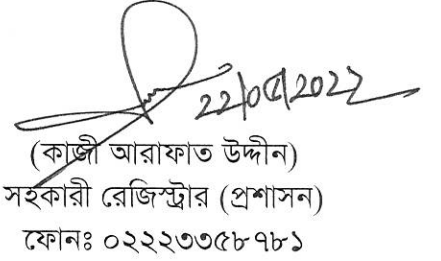 22/05/2022
(কাজী আরাফাত উদ্দীন)
সহকারী রেজিস্ট্রার (প্রশাসন)
ফোনঃ ০২২২৩৩৫৮৭৮১